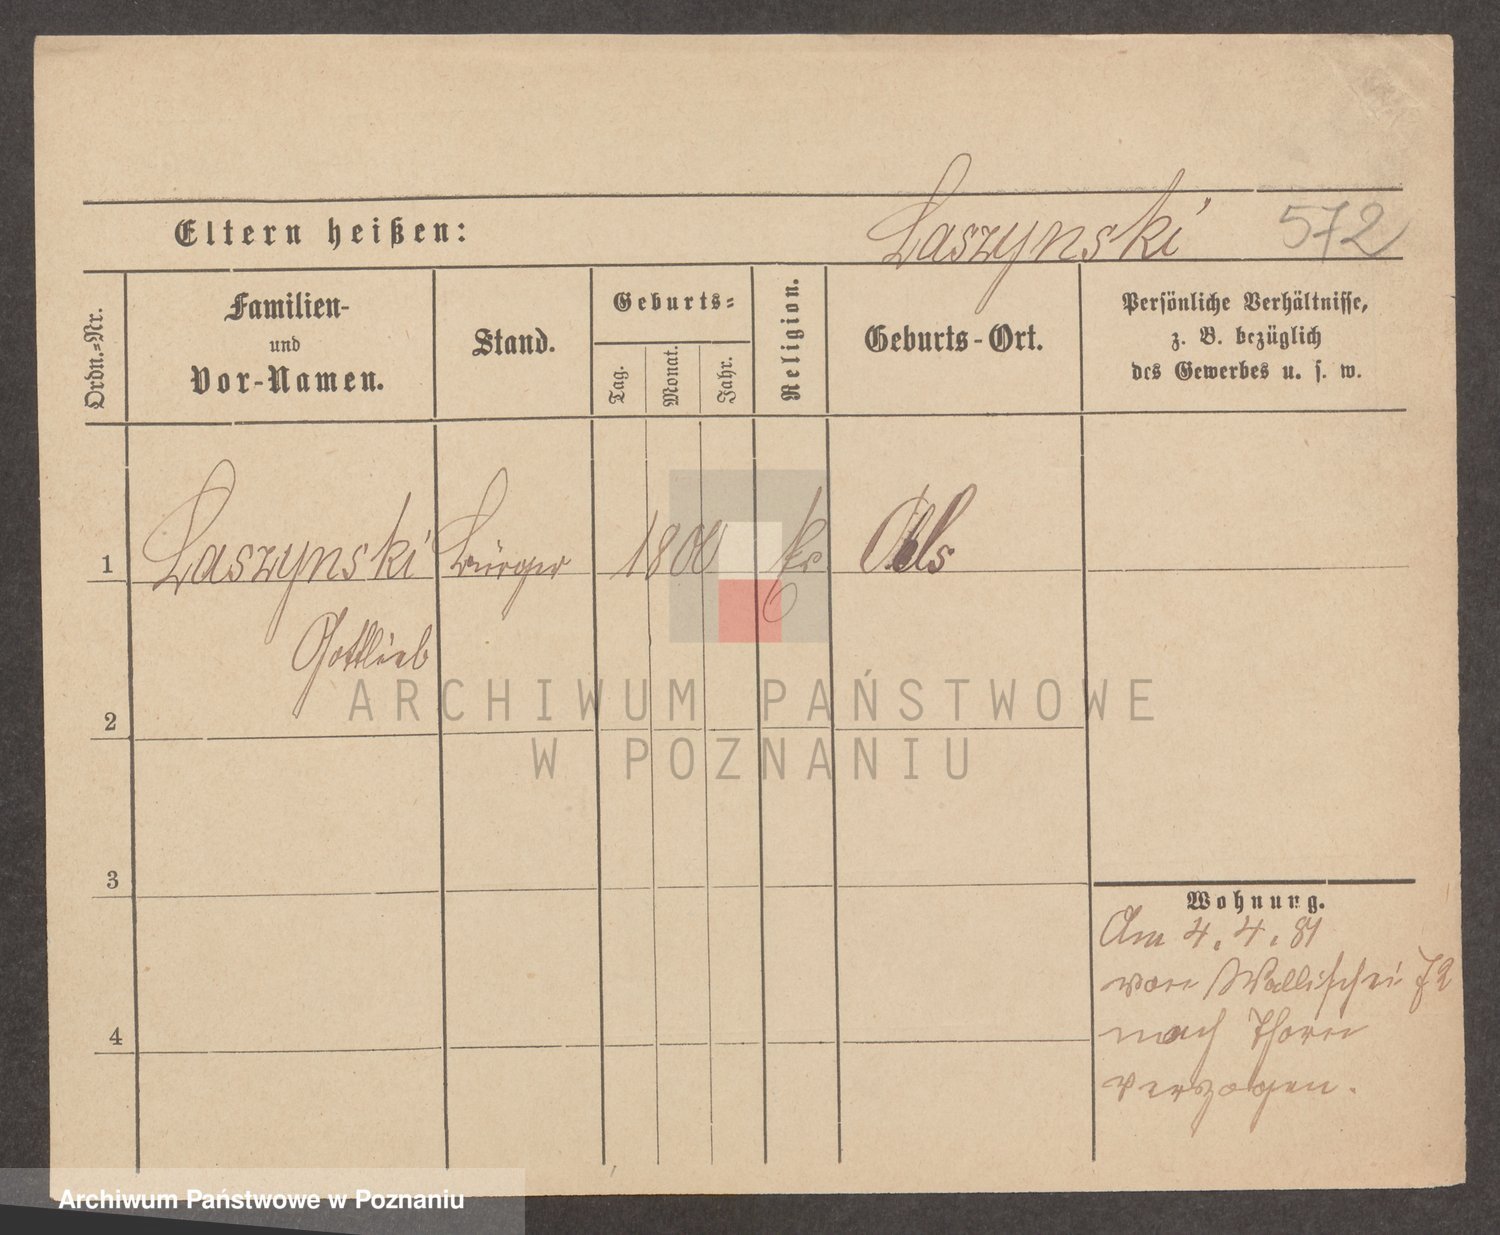 Eltern heißen: Laszynski 572
Ordn.-Nr.
Familien-
und
Vor-Namen.
Stand.
Geburts-
Tag.
Monat.
Jahr.
Religion.
Geburts-Ort.
Persönliche Verhältnisse,
z. B. bezüglich
des Gewerbes u. s. w.
1 Laszynski Bürger 1800 Oels
Gottlieb
2
3
4
Wohnung.
Am 4. 4. 81
von Wallischei 72
nach Thorn
verzogen.
ARCHIWUM PAŃSTWOWE
W POZNANIU
Archiwum Państwowe w Poznaniu